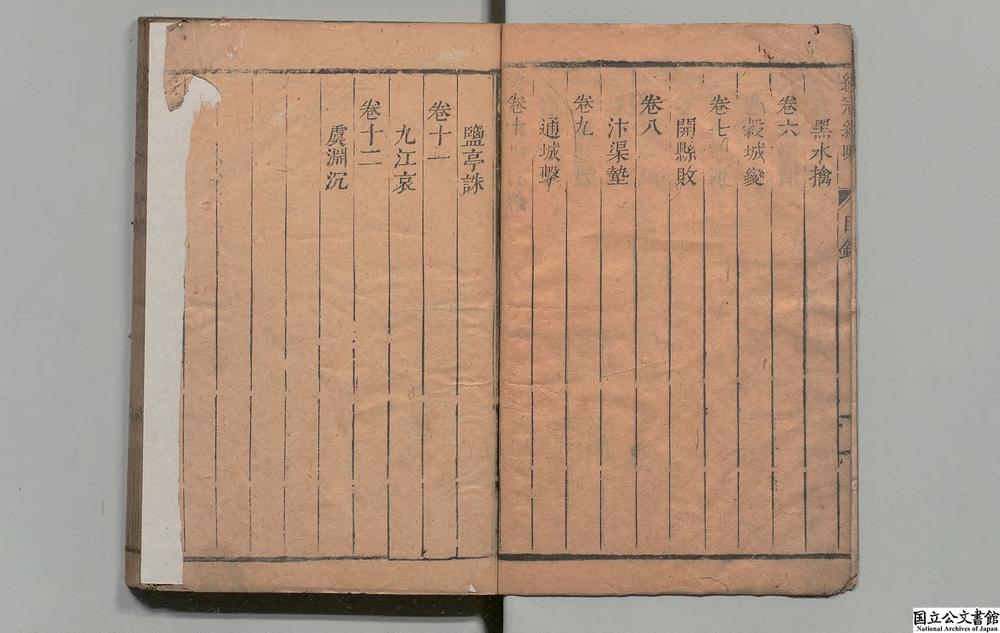 黑水擒
卷六
穀城變
卷七
開縣敗
卷八
汴渠墊
卷九
通城擊
卷十
鹽亭誅
卷十一
九江哀
卷十二
虞淵沉
目錄
国立公文書館
National Archives of Japan